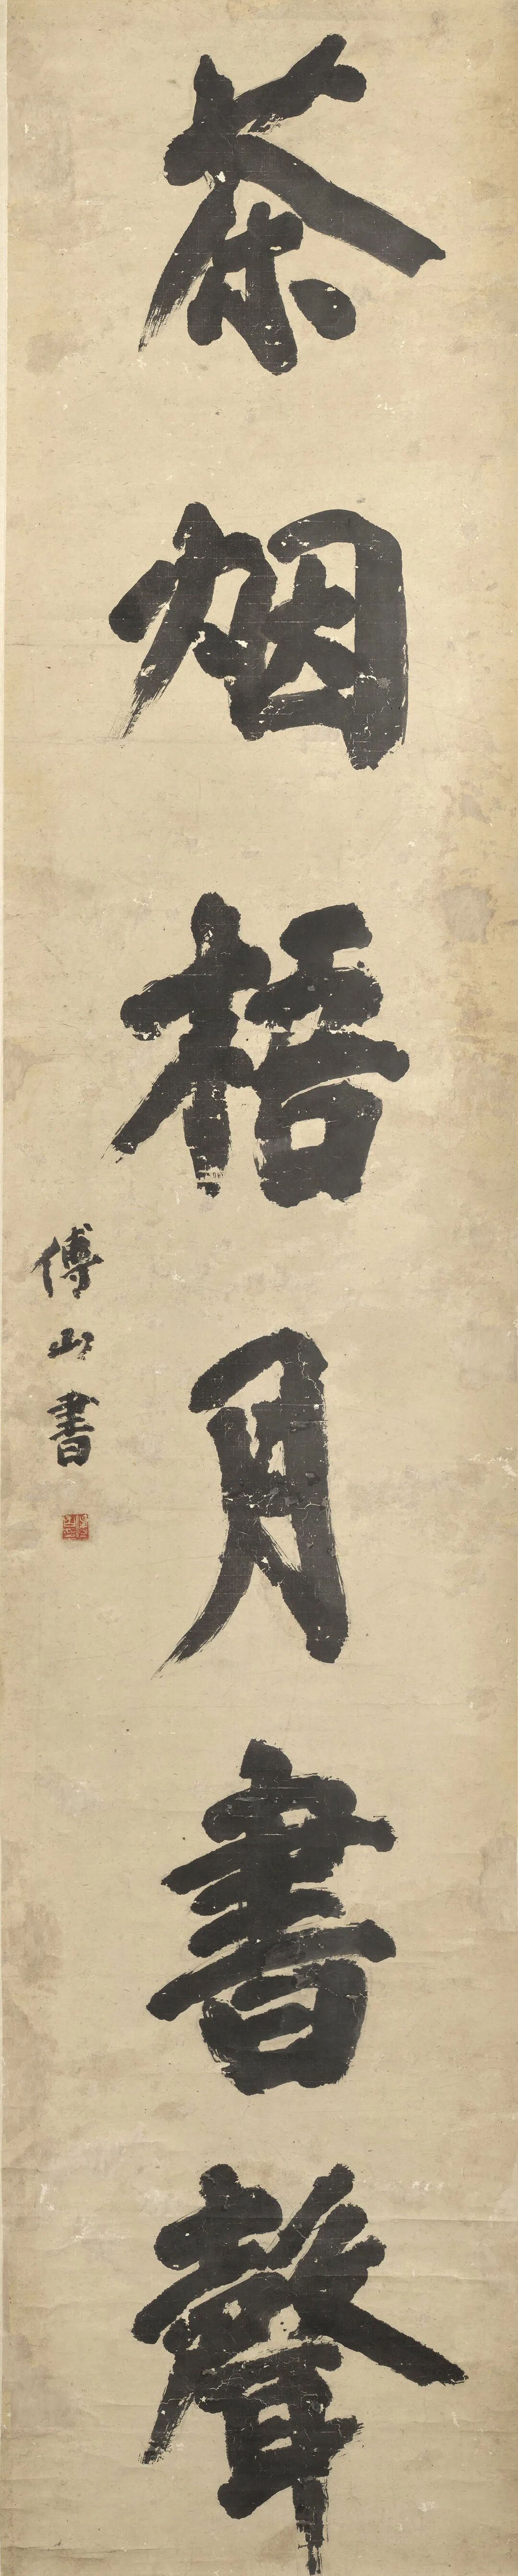 茶烟梧月書聲
傅山書